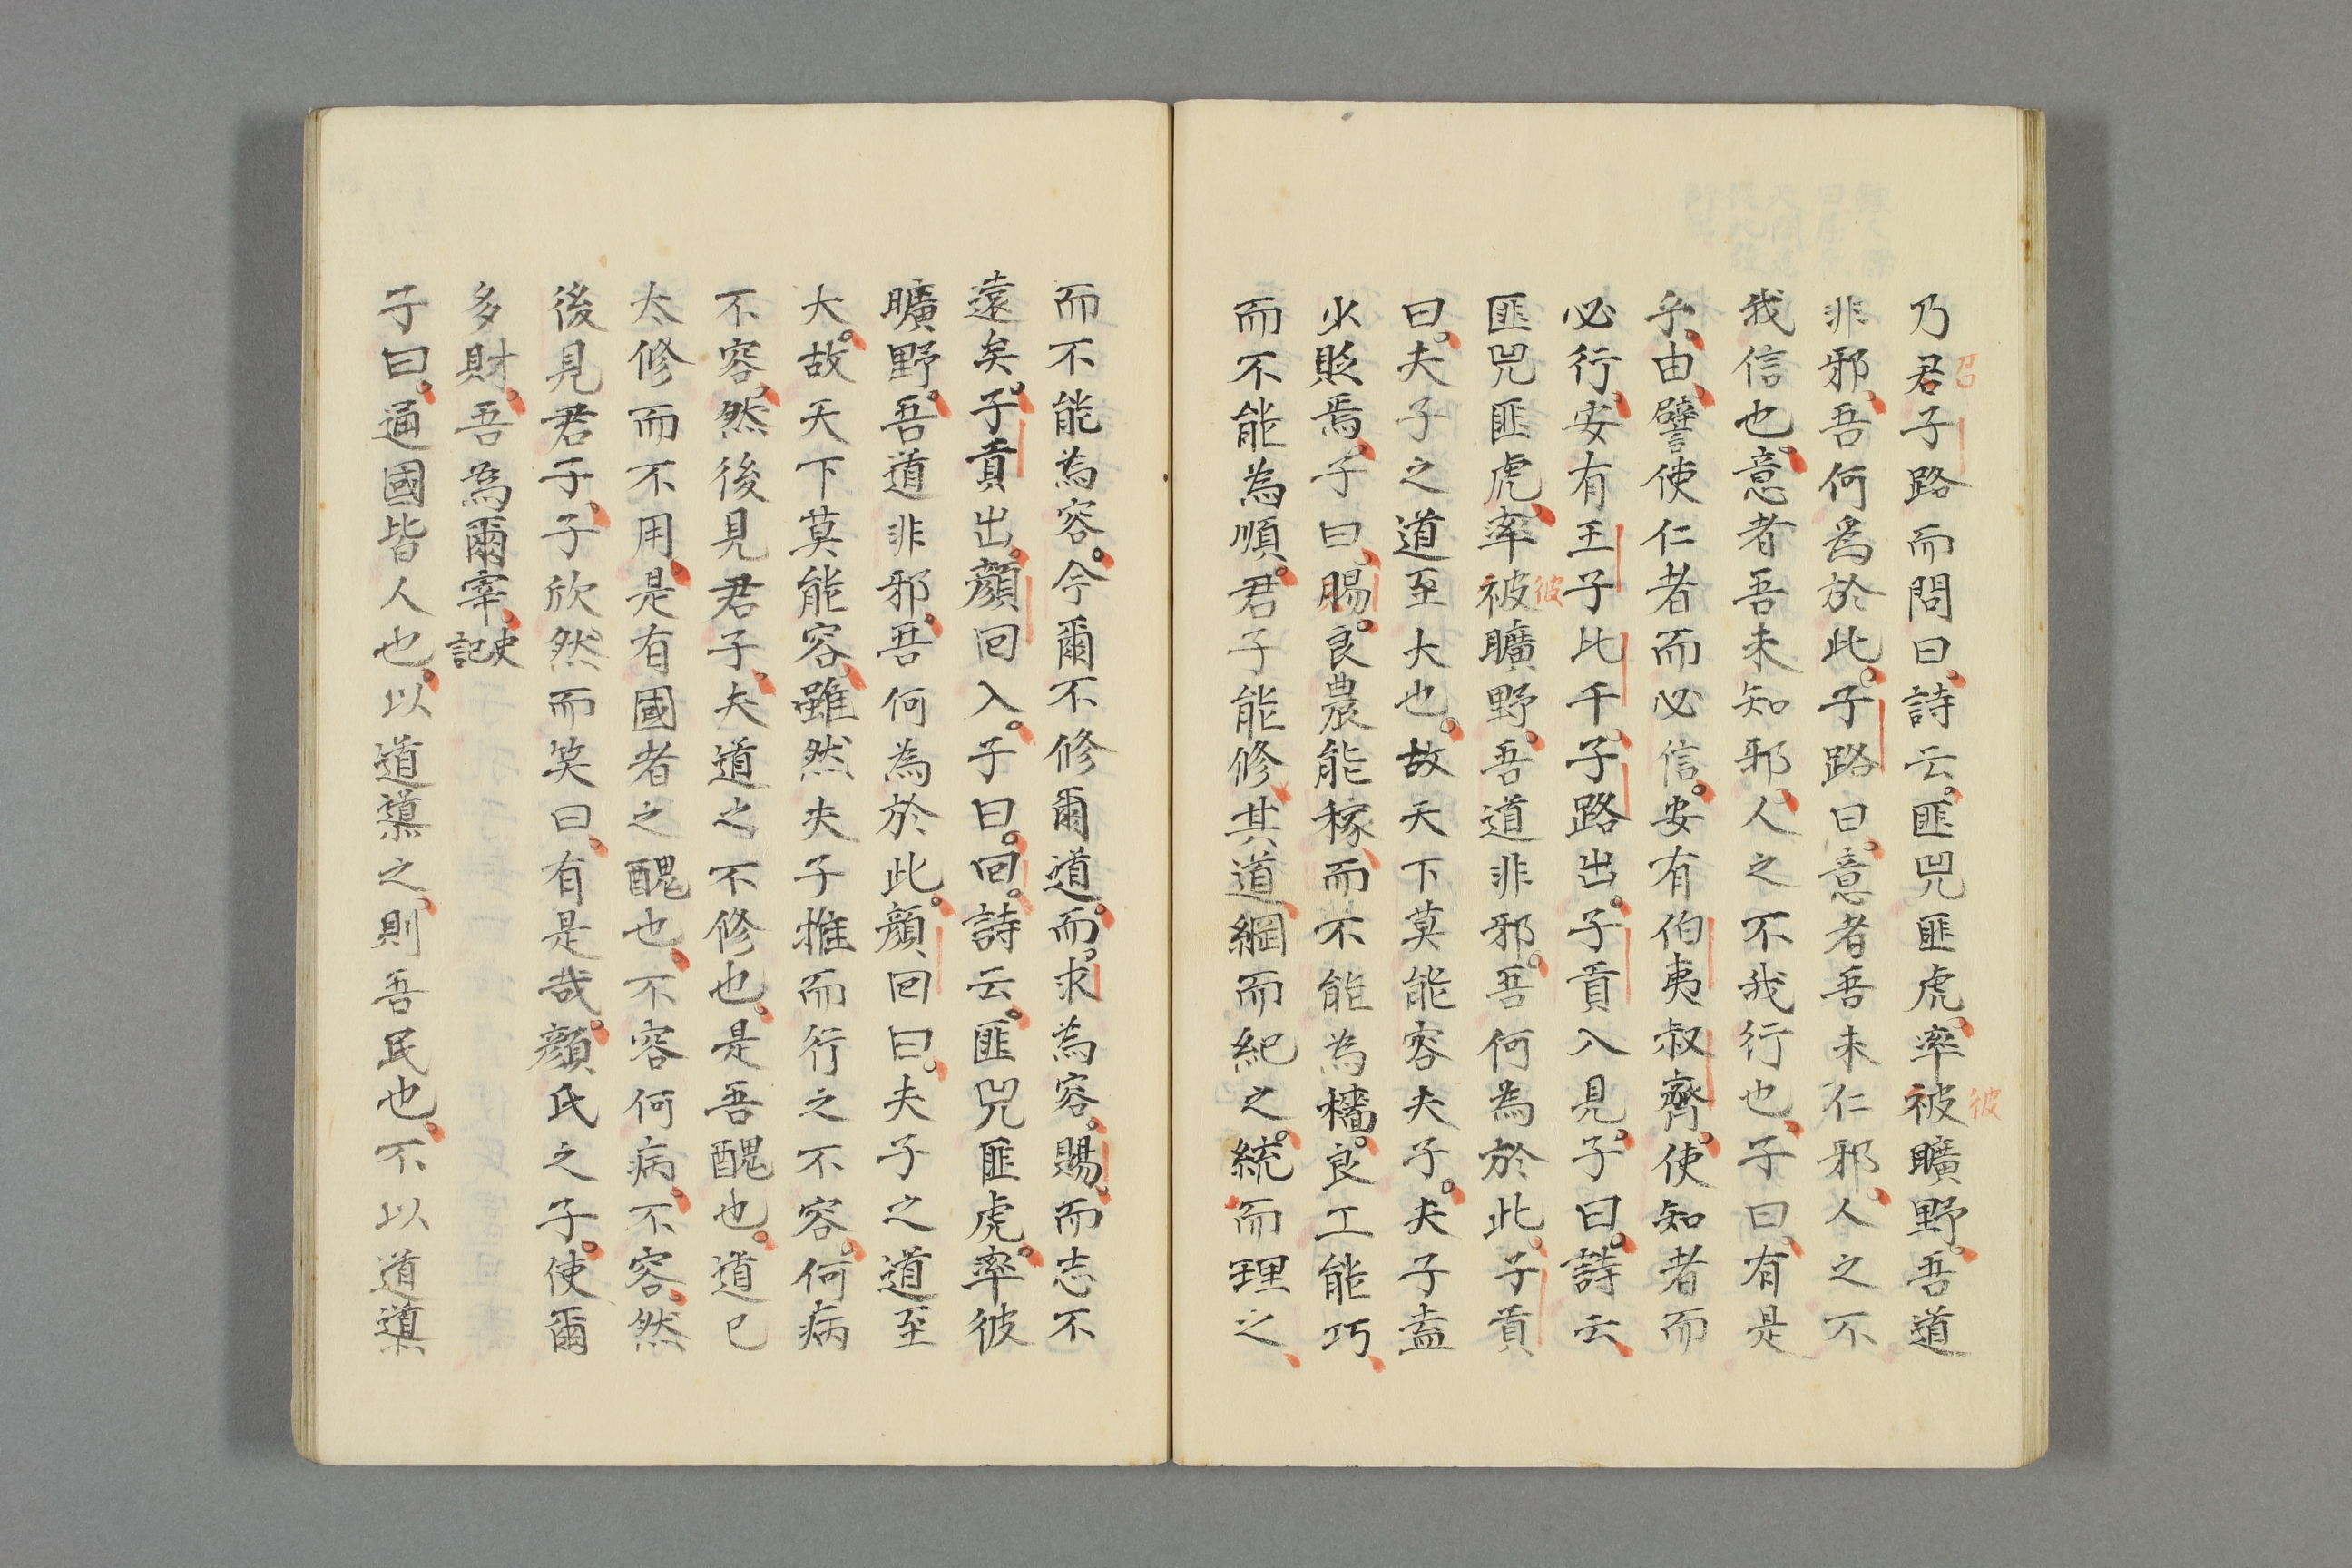 乃君子路而問曰詩云匪兕匪虎率被曠野吾道
召
彼
非邪吾何爲於此子路曰意者吾未仁邪人之不
我信也意者吾未知邪人之不我行也子曰有是
乎由譬使仁者而必信安有伯夷叔齊使知者而
必行安有王子比干子路出子貢入見子曰詩云
匪兕匪虎率被曠野吾道非邪吾何為於此子貢
彼
曰夫子之道至大也故天下莫能容夫子夫子盍
少貶焉子曰賜良農能稼而不能為穡良工能巧
而不能為順君子能修其道綱而紀之統而理之
而不能為容今爾不修爾道而求為容賜而志不
遠矣子貢出顏回入子曰回詩云匪兕匪虎率彼
曠野吾道非邪吾何為於此顏回曰夫子之道至
大故天下莫能容雖然夫子推而行之不容何病
不容然後見君子夫道之不修也是吾醜也道已
太修而不用是有國者之醜也不容何病不容然
後見君子子欣然而笑曰有是哉顏氏之子使爾
多財吾為爾宰史記
子曰通國皆人也以道導之則吾民也不以道導